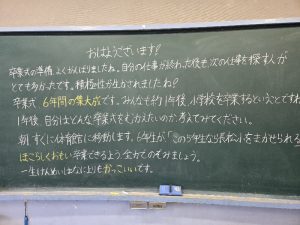 おはようございます!
卒業式の準備、よくがんばりましたね。自分の仕事が終わった後も次の仕事を探す人が
とても多かったです。積極性が生かされましたね!
卒業式 6年間の集大成です。みんなも約1年後、小学校を卒業するということですね
1年後、自分はどんな卒業式をむかえたいのか、考えてみてください。
朝、すぐに体育館に移動します。6年生が「 の5年生なら長松小をまかせられる
ほこらしくおもい卒業できるよう全力でのぞみましょう。
一生けんめいはなによりもかっこいいです。